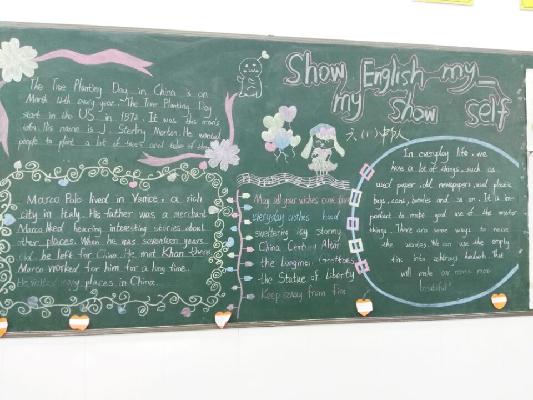 Show English my
my show self
The Tree Planting Day in China is on
March 12th every year. The Tree Planting Day
start in the US in 1872. It was this man's
idea. His name is J. Sterling Morton. He wanted
people to plant a lot of trees and take of them
Marco Polo lived in Venice, a rich
city in Italy. His father was a merchant
Marco liked hearing interesting stories about
other places. When he was seventeen years
old he left for China. He met Khan there
Marco worked for him for a long time.
He visited many places in China.
May all your wishes come true
everyday wishes
sweltering icy stormy
China Century Altar
the Longmen Grottoes
the Statue of Liberty
Keep away from fire
In everyday life, we
have a lot of things, such as
used paper, old newspapers, used plastic
bags, cans, bottles and so on. It is im-
portant to make good use of the waster
things. There are some ways to reuse
the wastes. We can use the empty
tins into ashtrays baskets. That
will make our rooms more
beautiful!